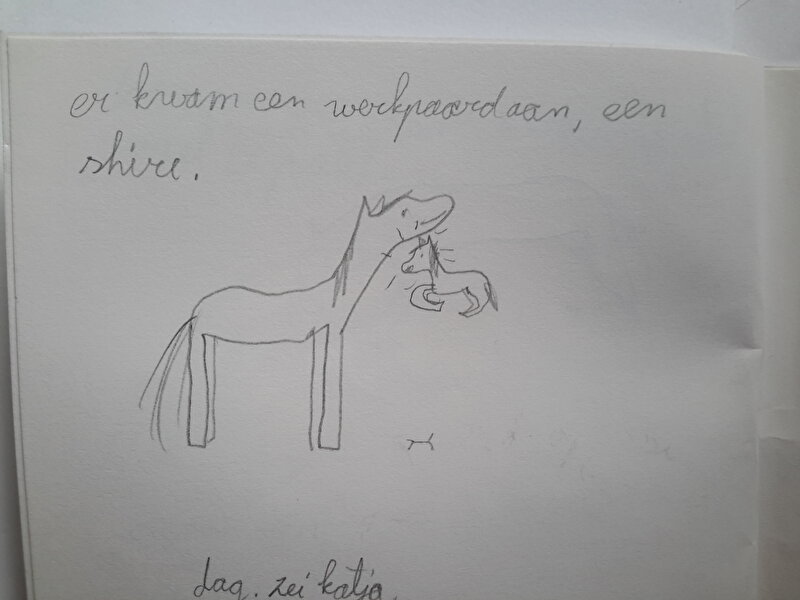 er kwam een werkpaard aan, een
shire.
dag. zei katja.